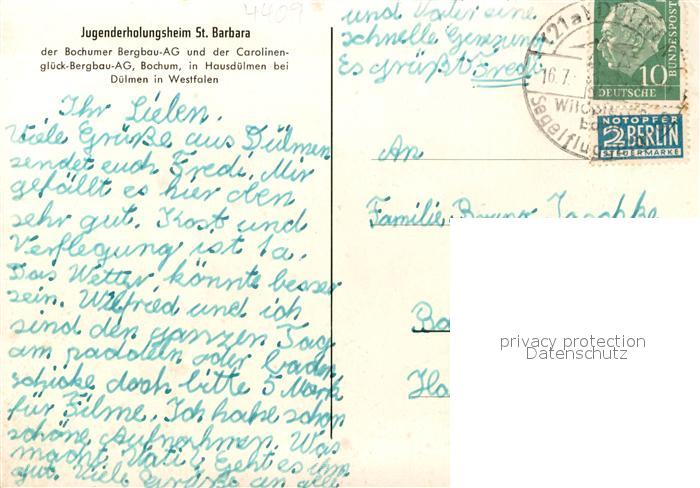 4409
Jugenderholungsheim St. Barbara
der Bochumer Bergbau-AG und der Carolinen-
glück-Bergbau-AG, Bochum, in Hausdülmen bei
Dülmen in Westfalen
Ihr Lieben,
Viele Grüße aus Dülmen
sendet euch Fredi. Mir
gefällt es hier oben
sehr gut. Kost und
Verflegung ist 1a.
Das Wetter könnte besser
sein. Wilfried und ich
sind den ganzen Tag
am paddeln oder baden
schicke doch bitte 5 Mark
für Filme. Ich habe schon
schöne Aufnahmen. Was
macht Vati? Geht es ihm
gut. Viele Grüße an alle
und Vater eine
schnelle Genesung
Es grüßt Fredi
(21a) DÜLMEN
16.7.
Segelflug
10
DEUTSCHE
BUNDESPOST
NOTOPFER
2 BERLIN
STEUERMARKE
An
Familie Bruno
privacy protection
Datenschutz